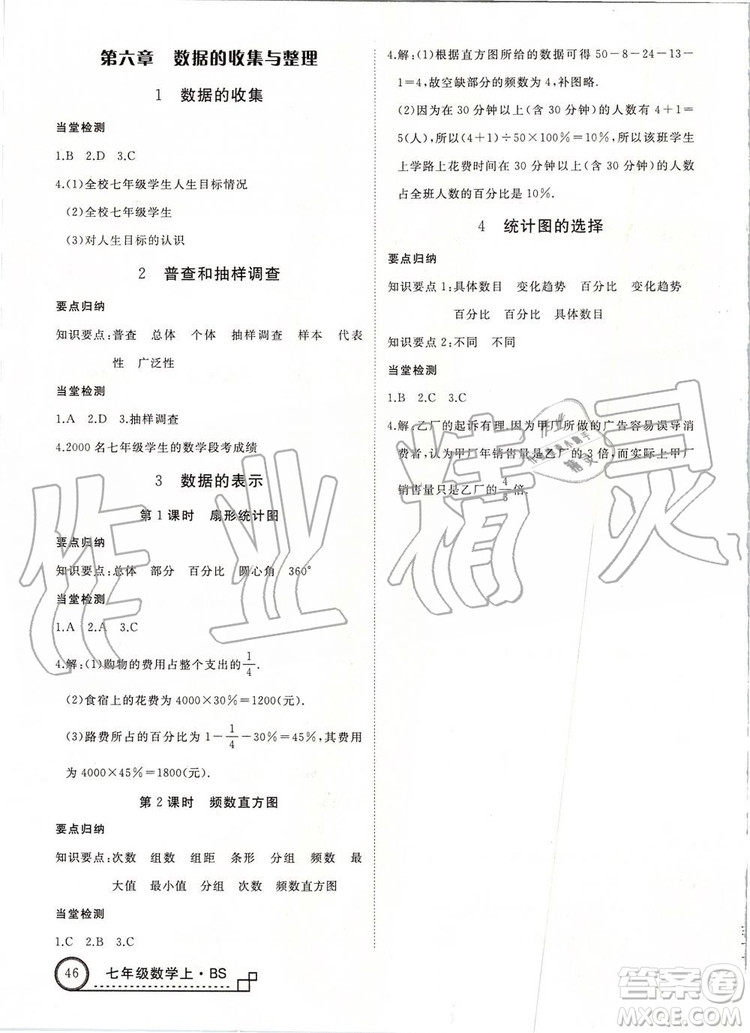 第六章　数据的收集与整理
1　数据的收集
当堂检测
1.B　2.D　3.C
4.(1)全校七年级学生人生目标情况
(2)全校七年级学生
(3)对人生目标的认识
2　普查和抽样调查
要点归纳
知识要点:普查　总体　个体　抽样调查　样本　代表
性　广泛性
当堂检测
1.A　2.D　3.抽样调查
4.2000 名七年级学生的数学段考成绩
3　数据的表示
第 1 课时　扇形统计图
要点归纳
知识要点:总体　部分　百分比　圆心角　360°
当堂检测
1.A　2.A　3.C
4.解:(1)购物的费用占整个支出的1/4.
(2)食宿上的花费为 4000×30%=1200(元).
(3)路费所占的百分比为 1-1/4-30%=45%,其费用
为 4000×45%=1800(元).
第 2 课时　频数直方图
要点归纳
知识要点:次数　组数　组距　条形　分组　频数　最
大值　最小值　分组　次数　频数直方图
当堂检测
1.C　2.B　3.C
46　七年级数学上·BS
4.解:(1)根据直方图所给的数据可得 50-8-24-13-
1=4,故空缺部分的频数为 4,补图略.
(2)因为在 30 分钟以上(含 30 分钟)的人数有 4+1=
5(人),所以(4+1)÷50×100%=10%,所以该班学生
上学路上花费时间在 30 分钟以上(含 30 分钟)的人数
占全班人数的百分比是 10%.
4　统计图的选择
要点归纳
知识要点 1:具体数目　变化趋势　百分比　变化趋势
百分比　百分比　具体数目
知识要点 2:不同　不同
当堂检测
1.B　2.C　3.C
4.解:乙厂的起诉有理.因为甲厂所做的广告容易误导消
费者,认为甲厂年销售量是乙厂的 3 倍,而实际上甲厂
销售量只是乙厂的4/3倍.
作业精灵
答案圈
MXQE.COM